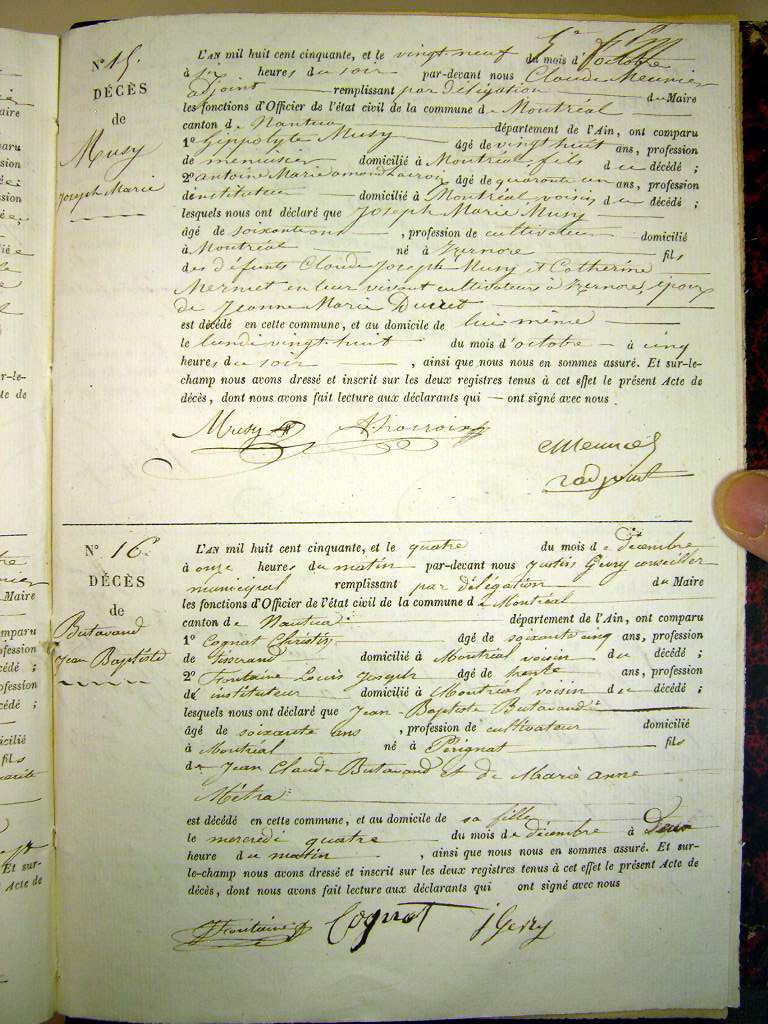 N° 15.
DÉCÈS
de
Musy
Joseph Marie
L'AN mil huit cent cinquante, et le vingt-neuf du mois d'octobre
à heures du soir par-devant nous Claude Meunier
adjoint remplissant par délégation du Maire
les fonctions d'Officier de l'état civil de la commune de Montréal
canton de Nantua département de l'Ain, ont comparu
1° hippolyte Musy âgé de vingt huit ans, profession
de menuisier domicilié à Montréal fils du décédé ;
2° Antoine Marie âgé de quarante un ans, profession
d'instituteur domicilié à Montréal voisin du décédé ;
lesquels nous ont déclaré que Joseph Marie Musy
âgé de soixante ans , profession de cultivateur domicilié
à Montréal né à Vernore fils
des défunts Claude Joseph Musy et Catherine
Mermet en leur vivant cultivateurs à Vernore, époux
de Jeanne Marie Ducret
est décédé en cette commune, et au domicile de lui même
le lundi vingt-huit du mois d'octobre à cinq
heures du soir , ainsi que nous nous en sommes assuré. Et sur-le-
champ nous avons dressé et inscrit sur les deux registres tenus à cet effet le présent Acte de
décès, dont nous avons fait lecture aux déclarants qui — ont signé avec nous
Musy
Meunier
adjoint
N° 16.
DÉCÈS
de
Butavand
Jean Baptiste
L'AN mil huit cent cinquante, et le quatre du mois de Décembre
à onze heures du matin par-devant nous Justin Gerry conseiller
municipal remplissant par délégation du Maire
les fonctions d'Officier de l'état civil de la commune de Montréal
canton de Nantua département de l'Ain, ont comparu
1° Cognat Christin âgé de soixante cinq ans, profession
de Tisserand domicilié à Montréal voisin du décédé ;
2° Fontaine Louis Joseph âgé de trente ans, profession
de instituteur domicilié à Montréal voisin du décédé ;
lesquels nous ont déclaré que Jean-Baptiste Butavand
âgé de soixante ans , profession de cultivateur domicilié
à Montréal né à Pérignat fils
de Jean Claude Butavand et de Marie Anne
Métra
est décédé en cette commune, et au domicile de sa fille
le mercredi quatre du mois de décembre à Deux
heure du matin , ainsi que nous nous en sommes assuré. Et sur-
le-champ nous avons dressé et inscrit sur les deux registres tenus à cet effet le présent Acte de
décès, dont nous avons fait lecture aux déclarants qui ont signé avec nous
Fontaine Cognat J Gerry